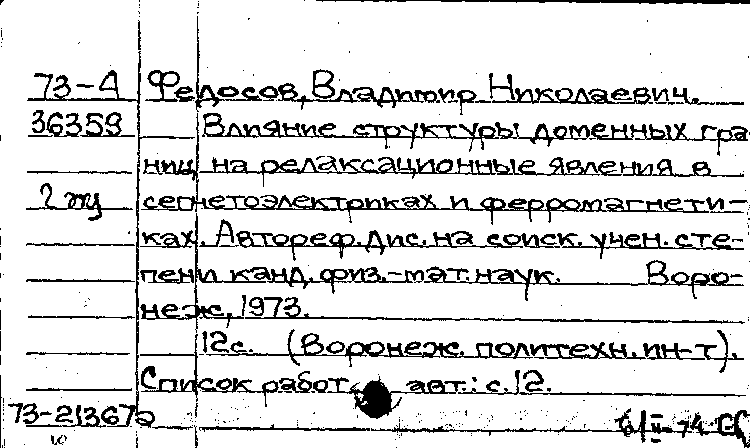 73-А Федосов, Владимир Николаевич.
36359 Влияние структуры доменных гра
ниц на релаксационные явления в
2 сегнетоэлектриках и ферромагнети-
ках. Автореф. дис. на соиск. учен. сте-
пени канд. физ.-мат. наук. Воро-
неж, 1973.
12с. (Воронеж. политехн. ин-т).
Список работ авт.: с. 12.
73-21367
6/II-74